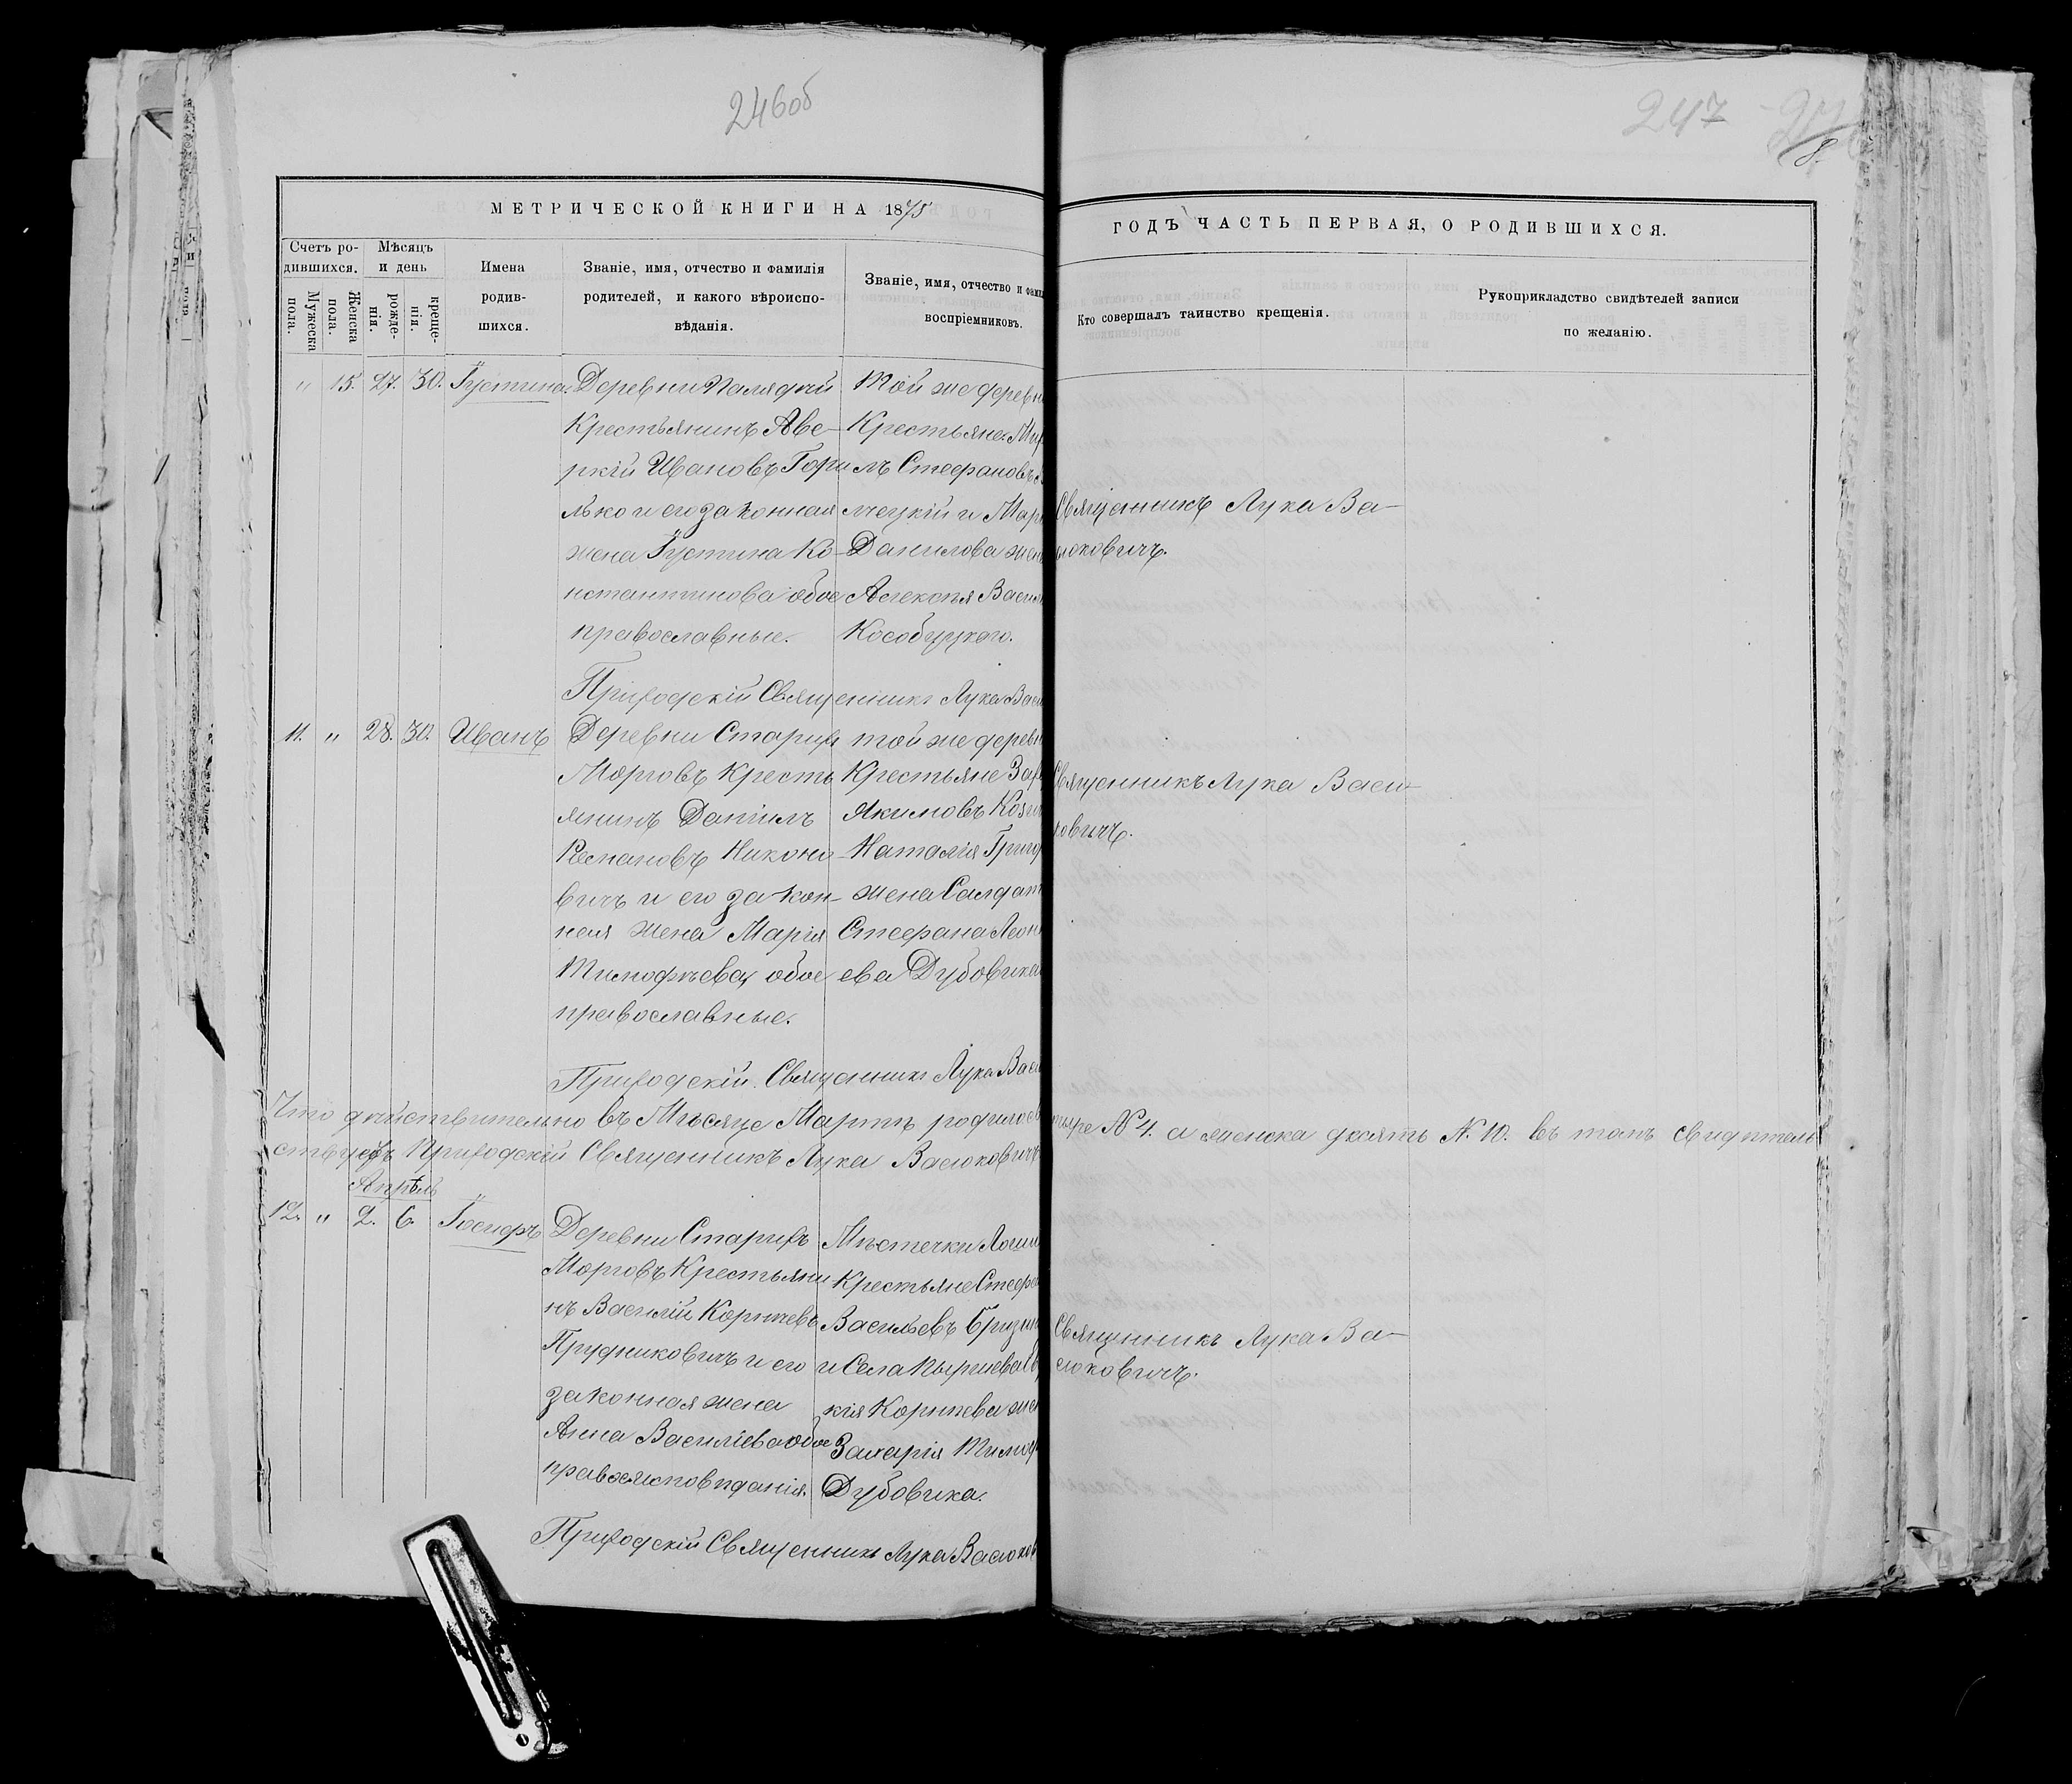 246об
247
8.
МЕТРИЧЕСКОЙ КНИГИ НА 1875
ГОДЪ ЧАСТЬ ПЕРВАЯ, О РОДИВШИХСЯ.
Счетъ ро-
дившихся.
Мужеска
пола.
Женска
пола.
Мѣсяцъ
и день
рожде-
нія.
креще-
нія.
Имена
родив-
шихся.
Званіе, имя, отчество и фамилія
родителей, и какого вѣроиспо-
вѣданія.
Званіе, имя, отчество и фами
воспріемниковъ.
Кто совершалъ таинство крещенія.
Рукоприкладство свидѣтелей записи
по желанію.
" 15. 27. 30. Іустина.
Деревни
Крестьянинъ Аве-
ркій Ивановъ Гори
лько и его законная
жена Іустина Ко-
нстантинова обое
православные.
Той же деревн
Крестьяне
Стефановъ
и Мар
Данилова жен
Алексѣя Васил
Кособуцкого.
Священникъ Лука Ва-
сюковичъ.
Приходскій Священникъ Лука Васю
11. " 28. 30. Иванъ
Деревни Старихъ
Морговъ Кресть
янинъ Даніилъ
Романовъ Никоно
вичъ и его закон-
ная жена Марія
Тимофѣева, обое
православные.
той же деревн
Крестьяне Зах
Якимовъ
Наталія Григо
жена Салдат
Стефана Леон
ева Дубовика
Священникъ Лука Васю-
ковичъ.
Приходскій Священникъ Лука Васю
Что дѣйствительно въ Мѣсяце Мартѣ родилось
ыре № 4. а женска десять №. 10. въ томъ свидѣтель
ствуетъ Приходскій Священникъ Лука Васюковичъ
Апрѣль
12. " 2. 6. Іосифъ
Деревни Старихъ
Морговъ Крестьяни
нъ Василій Корнѣевъ
Прудниковичъ и его
законная жена
Анна Васильева обое
православоисповѣданія.
Мѣстечки
Крестьяне Стефа
Васильевъ
и Села
кія Корнѣева же
Захарія Тимоф
Дубовика.
Священникъ Лука Ва-
сюковичъ.
Приходскій Священникъ Лука Васюков